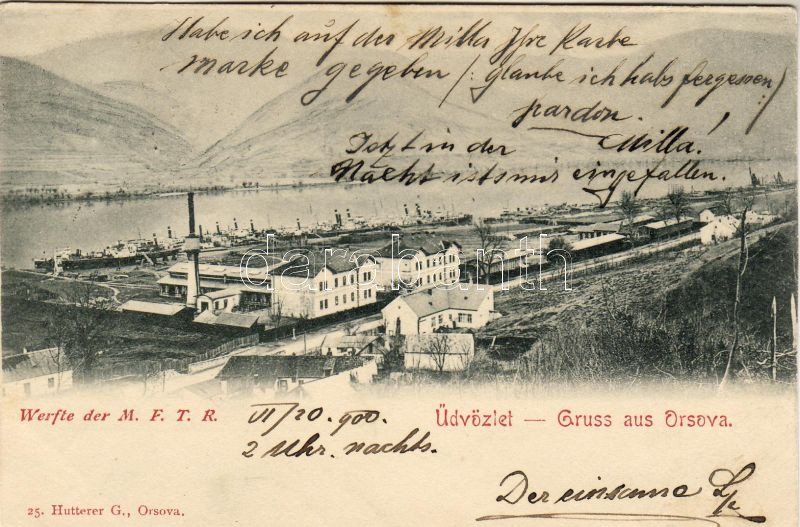 Habe ich auf der Milla Ihre Karte
marke gegeben /: glaube ich habs fergessen :/
pardon.
Milla!
Jetzt in der
Nacht ists mir eingefallen.
darabanth
Werfte der M. F. T. R.
VI/20. 900.
2 Uhr. nachts.
Üdvözlet — Gruss aus Orsova.
25. Hutterer G., Orsova.
Der einsame